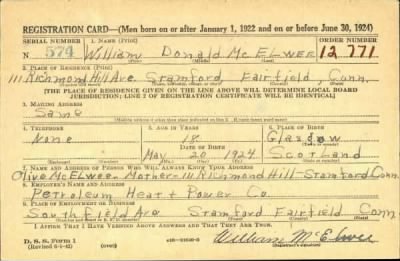 REGISTRATION CARD—(Men born on or after January 1, 1922 and on or before June 30, 1924)
SERIAL NUMBER 1. NAME (Print) ORDER NUMBER
N 574 William Donald McElwee 12,771
(First) (Middle) (Last)
2. PLACE OF RESIDENCE (Print)
111 Richmond Hill Ave Stamford, Fairfield, Conn.
[THE PLACE OF RESIDENCE GIVEN ON THE LINE ABOVE WILL DETERMINE LOCAL BOARD
JURISDICTION; LINE 2 OF REGISTRATION CERTIFICATE WILL BE IDENTICAL]
3. MAILING ADDRESS
Same
[Mailing address if other than place indicated on line 2. If same insert word same]
4. TELEPHONE 5. AGE IN YEARS 6. PLACE OF BIRTH
None 18 Glasgow
DATE OF BIRTH
May 20 1924 Scotland
(Exchange) (Number) (Mo.) (Day) (Yr.) (State or country)
7. NAME AND ADDRESS OF PERSON WHO WILL ALWAYS KNOW YOUR ADDRESS
Olive McElwee-Mother-111 Richmond Hill-Stamford Conn
8. EMPLOYER'S NAME AND ADDRESS
Petroleum Heat + Power Co.
9. PLACE OF EMPLOYMENT OR BUSINESS
Southfield Ave Stamford Fairfield Conn
I AFFIRM THAT I HAVE VERIFIED ABOVE ANSWERS AND THAT THEY ARE TRUE.
D. S. S. Form 1
(Revised 6-9-42) (over) William McElwee